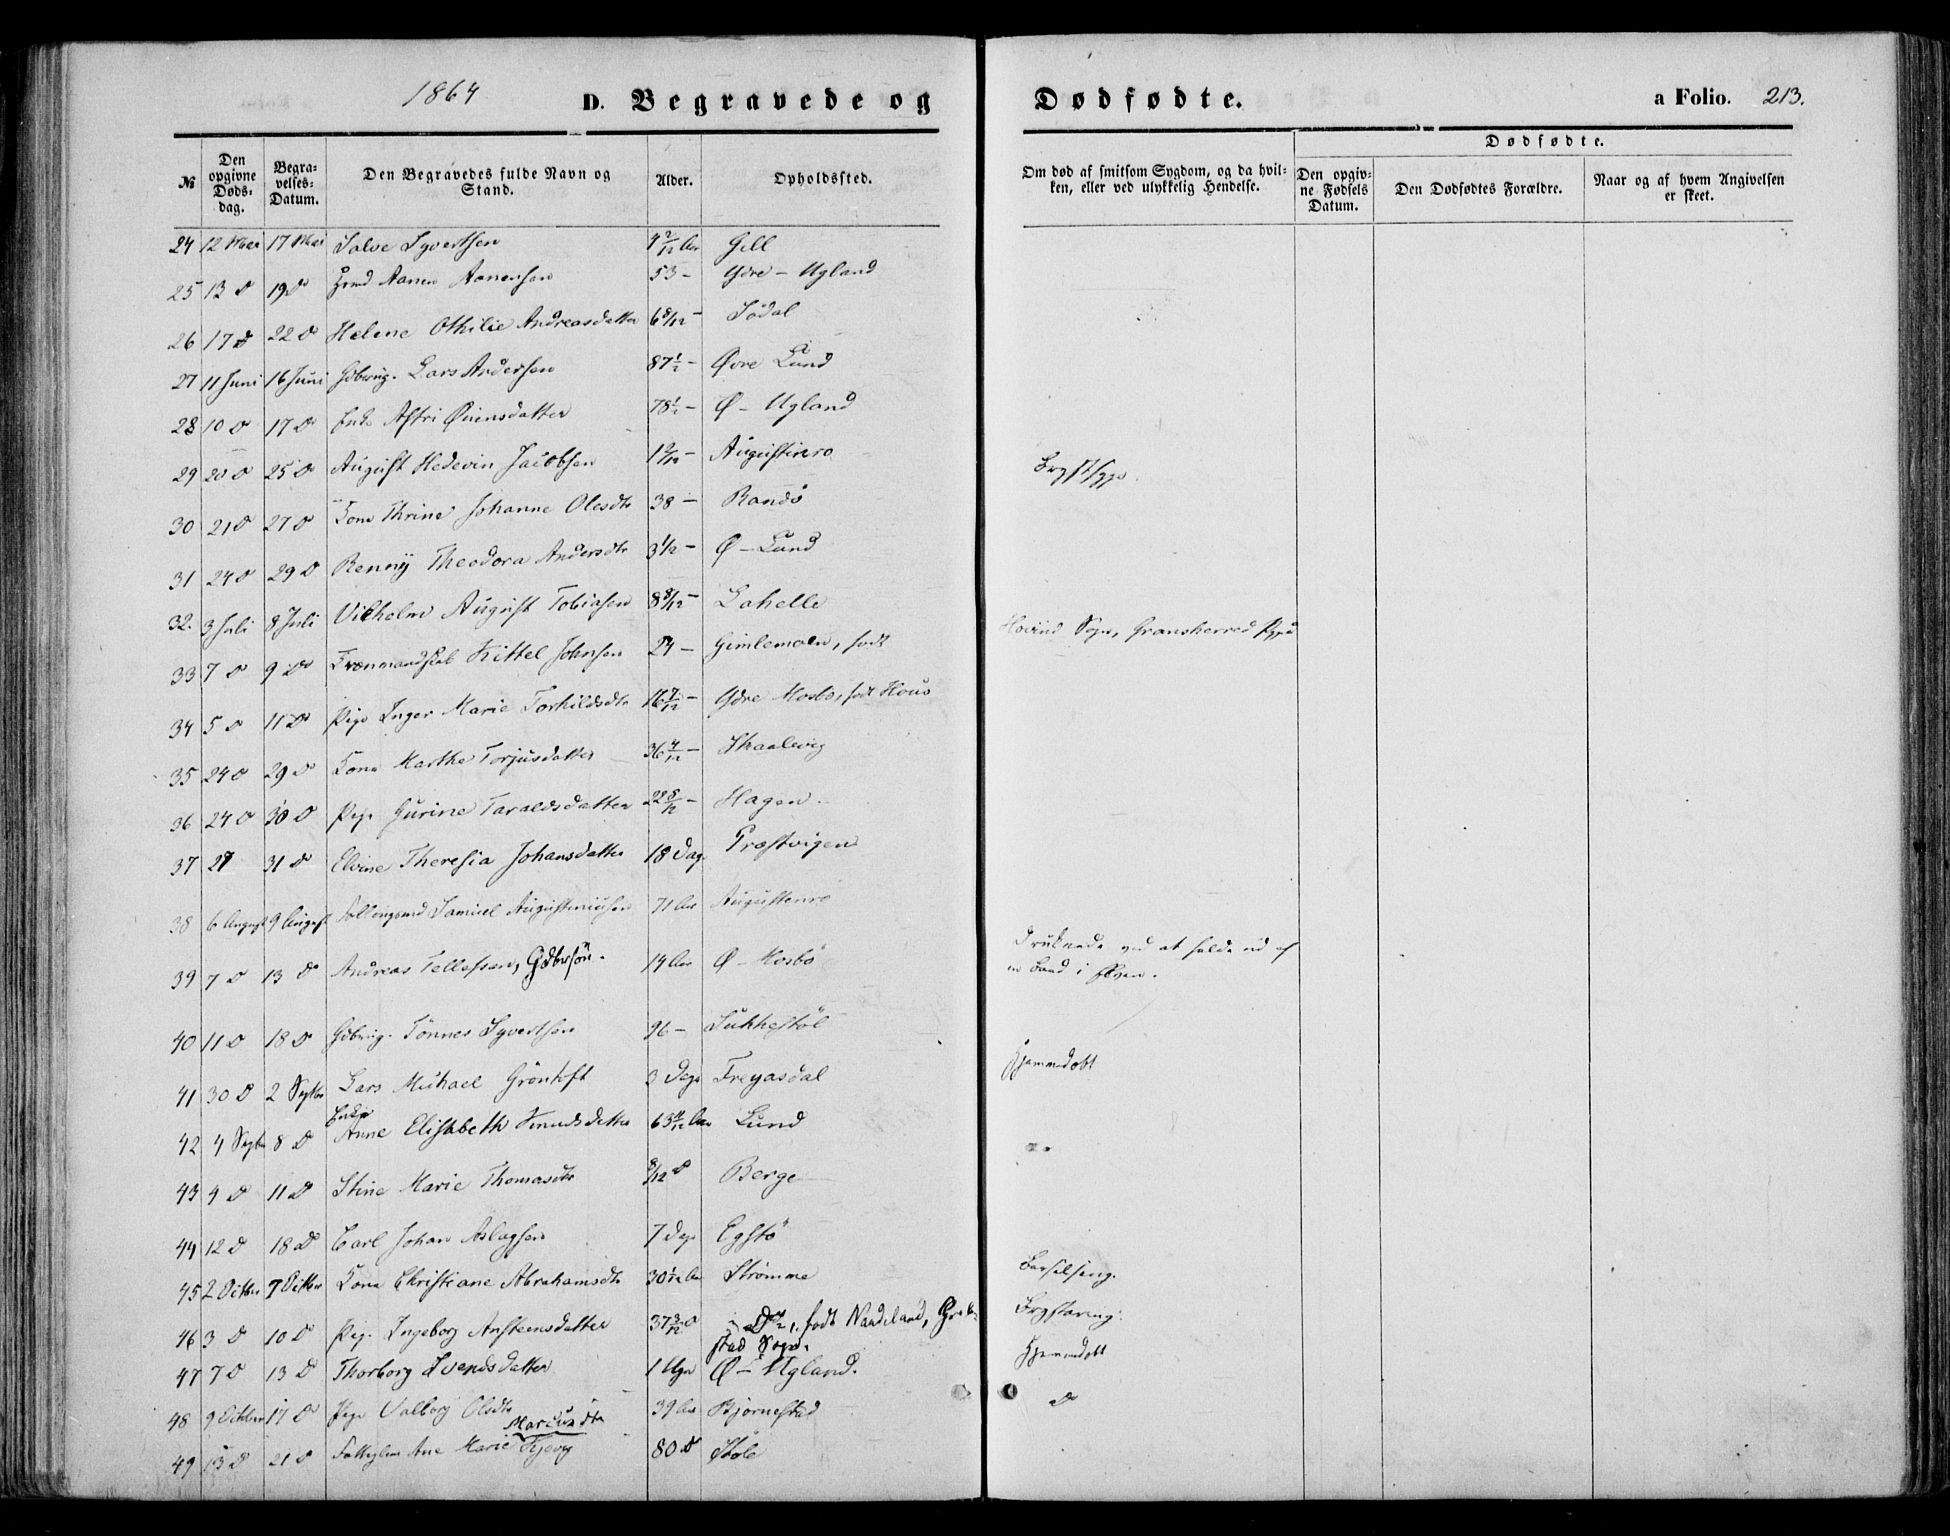 1864
D. Begravede og Dødfødte.
a Folio. 213.
Dødfødte.
№ Den opgivne Døds-dag. Begra-velses-Datum. Den Begravedes fulde Navn og Stand. Alder. Opholdssted. Om død af smitsom Sygdom, og da hvil-ken, eller ved ulykkelig Hendelse. Den opgiv-ne Fødsels Datum. Den Dødfødtes Forældre. Naar og af hvem Angivelsen er skeet.
24 12 Mai 17 Mai Salve Syvertsen 4 2/12 Aar Gill
25 13 D 19 D Aanen Aanensen 53 - Ydre - Ugland
26 17 D 22 D Helene Othilie Andreasdatter 6 8/12 - Södal
27 11 Juni 16 Juni Gdbrug. Lars Andersen 87 1/2 - Øvre Lund
28 10 D 17 D Enke Astri Øvensdatter 78 1/2 - Ø - Ugland
29 20 D 25 D August Hedevin Jacobsen Augustinero Brystsyge.
30 21 D 27 D Kone Thrine Johanne Olesdtr 38 - Randö
31 24 D 29 D Renny Theodora Andersdtr 3 1/12 - Ø - Lund
32. 3 Juli 8 Juli Vilhelm August Tobiasen 8 8/12 - Lahelle
33 7 D 9 D Kittel Johnsen 24 - Gimlemoen, født Hovind Sogn, Gransherred
34 5 D 11 D Pige Inger Marie Torkildsdtr 16 7/12 - Ydre Mosbö, født Hous
35 24 D 29 D Kone Marthe Torjusdatter 36 4/12 - Skaalevig
36 24 D 30 D Pige Gurine Taraldsdatter 22 8/12 - Hagen
37 27 31 D Elvine Theresia Johansdatter 18 Dage Præstvigen
38 6 August 9 August Samuel Augustiniusen 71 Aar Augustenro
39 7 D 13 D Andreas Tellefsen, Gdbrsön. 14 Aar Ø - Mosbö druknede ved at falde ud af
en Baad i Elven.
40 11 D 18 D Gdbrug. Tönnes Syvertsen 96 - Sukkestöl
41 30 D 2 Septbr Lars Michael Gröntoft 3 Dage Freyasdal Hjemmedøbt
42 4 Septbr 8 D Enke Anne Elisabeth Knudsdatter Lund
43 4 D 11 D Stine Marie Thomasdtr 8/12 D Berge
44 12 D 18 D Carl Johan Aslagsen 7 Dage Egstö
45 2 Octbr 7 Octbr Kone Christiane Abrahamsdtr 30 1/12 Aar Strømme Barselseng.
46 3 D 10 D Pige Ingeborg Ansteensdatter D, født Nandeland,
stad Sogn.
47 7 D 13 D Thorborg Svendsdatter 1 Uge Ø - Ugland. Hjemmedøbt
48 9 Octbr 17 D Pige Valborg Olsdtr 39 Aar Bjørnestad D
49 13 D 21 D Ane Marie Marcusdtr 80 D Stole